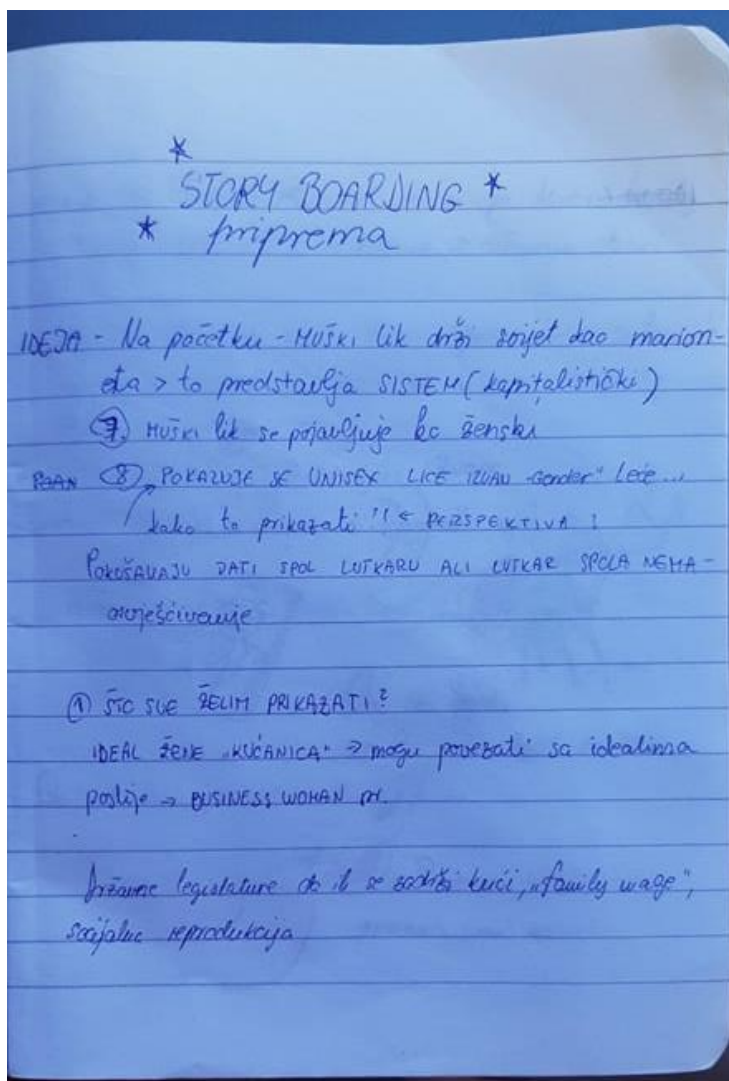 STORY BOARDING
priprema
IDEJA - Na početku - MUŠKI lik drži svijet kao marion-
eta > to predstavlja SISTEM (kapitalistički)
7. MUŠKI lik se pojavljuje ko ženski
8. POKAZUJE SE UNISEX LICE IZVAN "Gender" leće...
kako to prikazati !! ← PERSPEKTIVA !
POKUŠAVAJU DATI SPOL LUTKARU ALI LUTKAR SPOLA NEMA -
osvješćivanje
① ŠTO SVE ŽELIM PRIKAZATI?
IDEAL ŽENE „KUĆANICA" → mogu povezati sa idealima
poslije → BUSINESS WOMAN
Državne legislature da se zadrži kući, „family wage",
socijalna reprodukcija